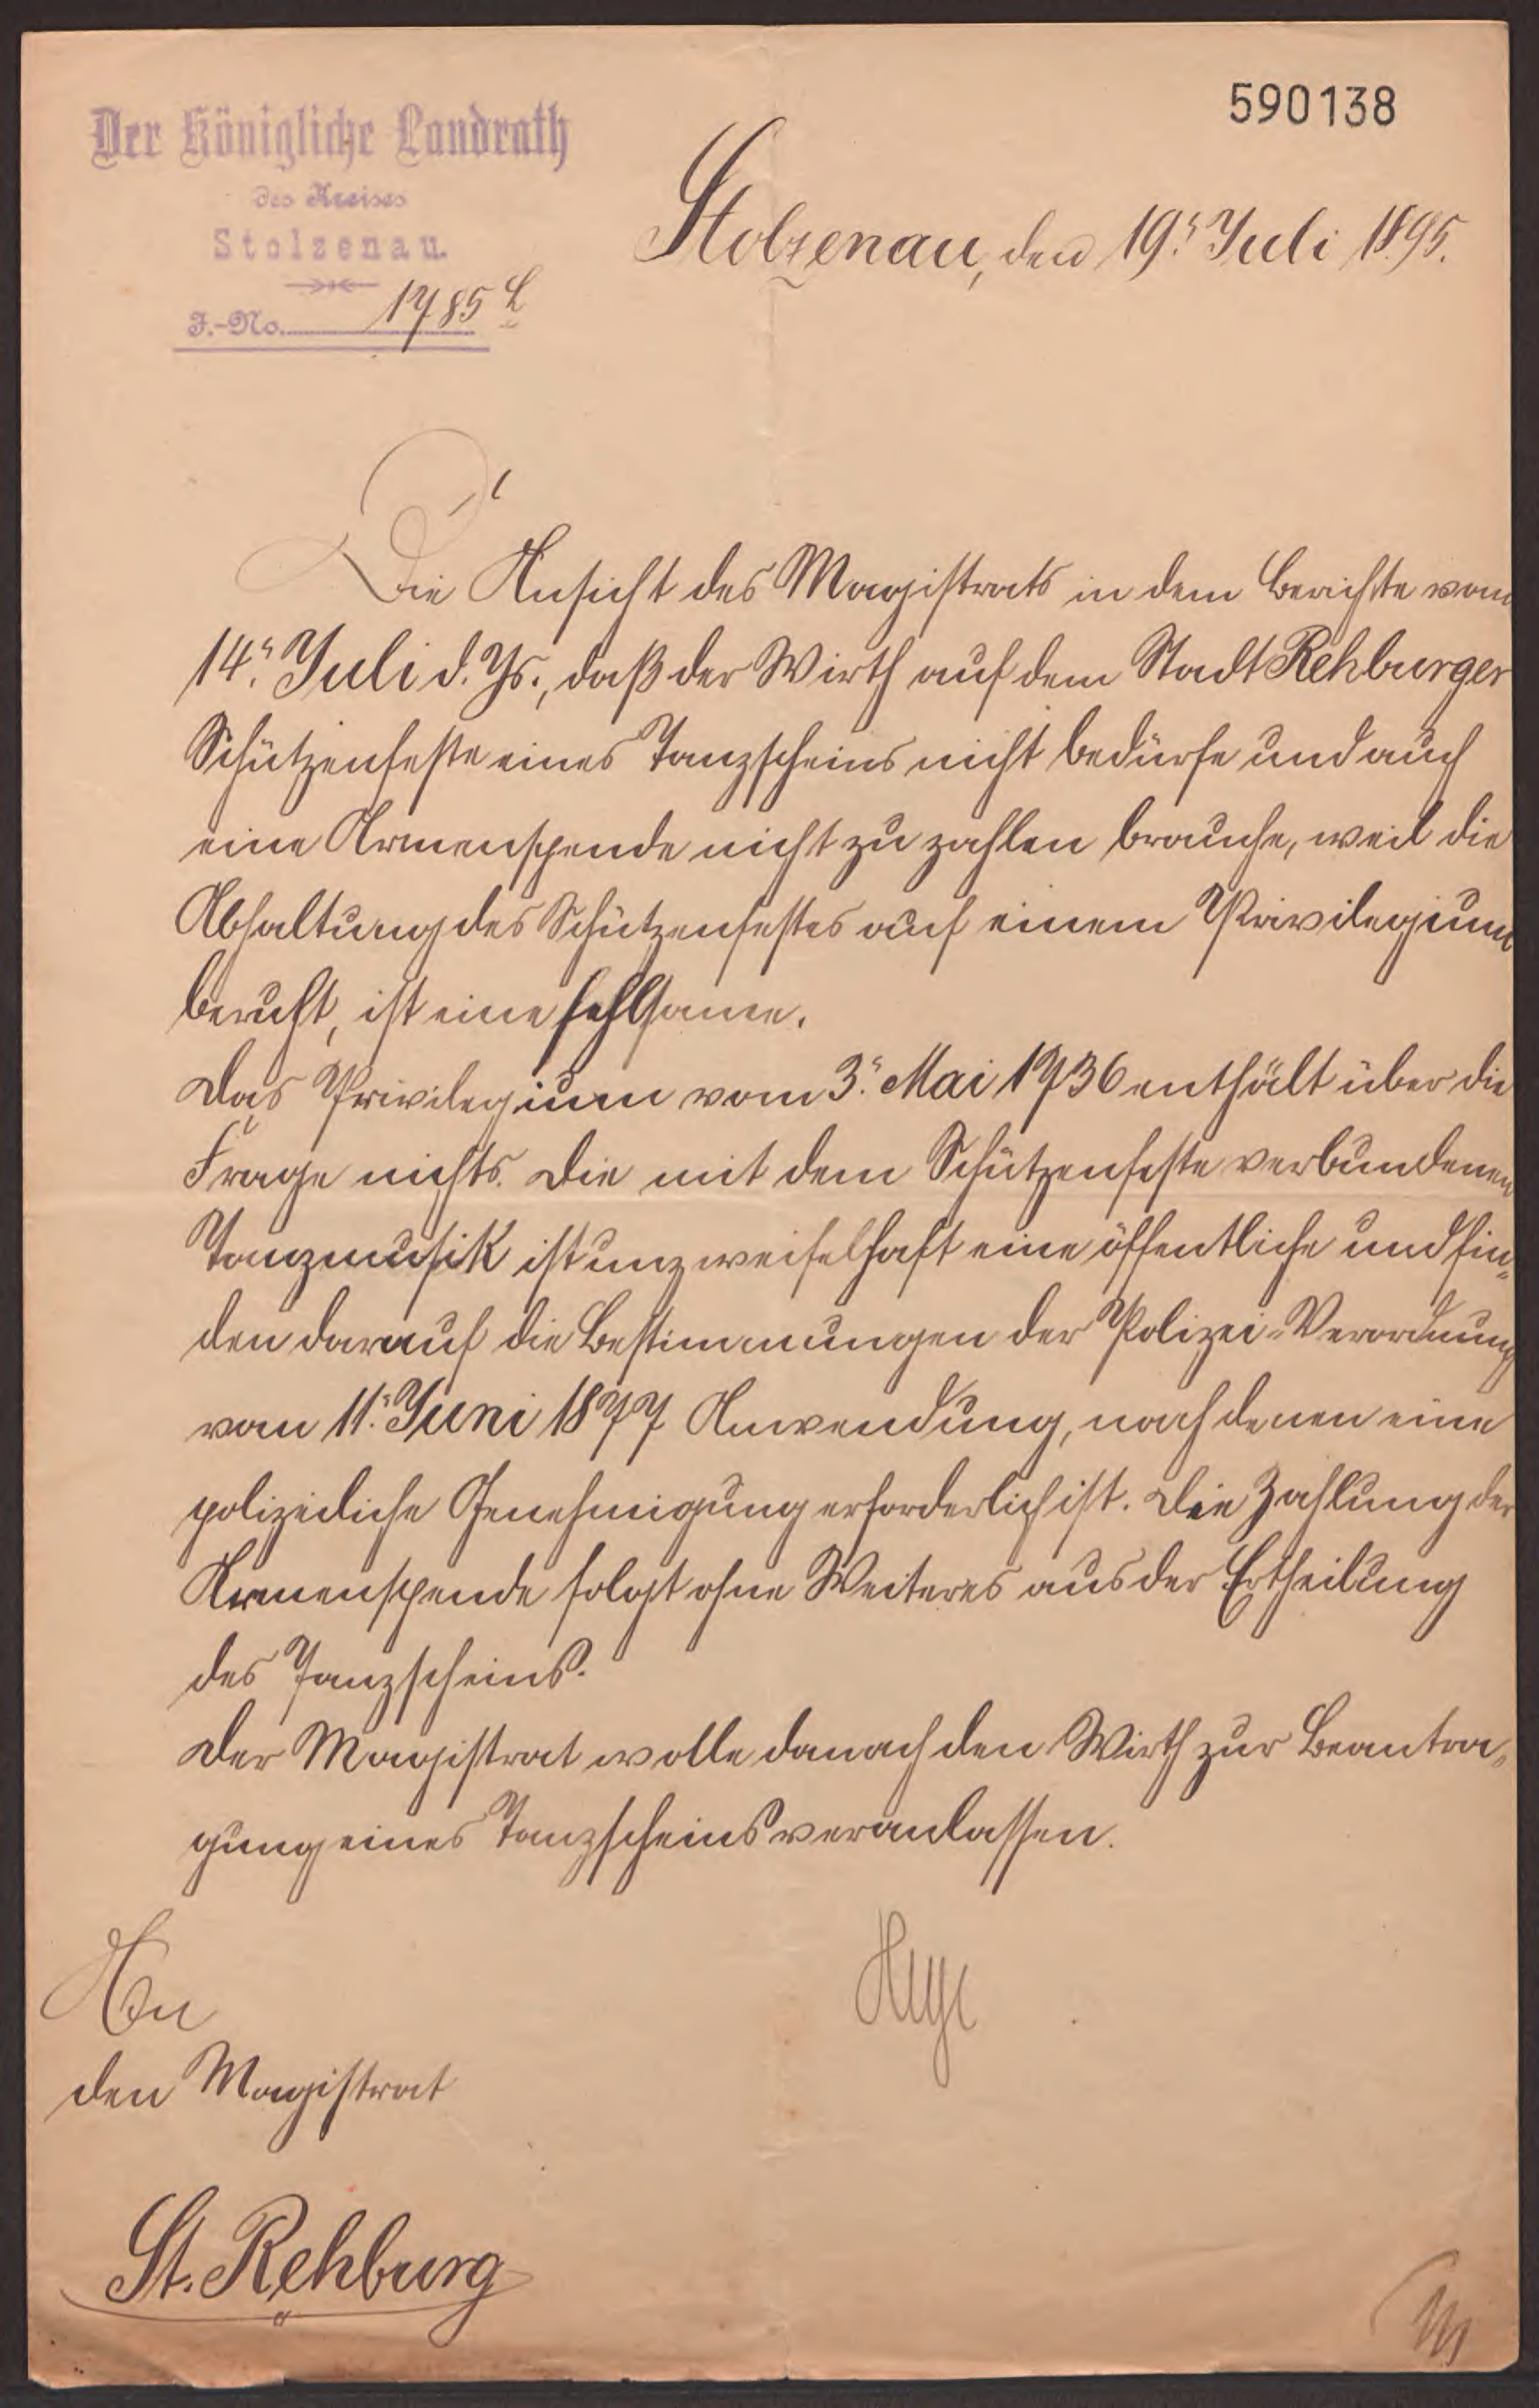 590138
Der Königliche Landrath
des Kreises
Stolzenau.
J.-No. 1785 L
Stolzenau, den 19. Juli 1895.
Die Ansicht des Magistrats in dem Berichte vom
14. Juli d. Js., daß der Wirth auf dem Stadt Rehburger
Schützenfeste eines Tanzscheins nicht bedürfe und auch
eine Armenspende nicht zu zahlen brauche, weil die
Abhaltung des Schützenfestes auf einem Privilegium
beruht, ist eine fehlsame.
Das Privilegium vom 3. Mai 1736 enthält über die
Frage nichts. Die mit dem Schützenfeste verbundenen
Tanzmusik ist unzweifelhaft eine öffentliche und fin-
den darauf die Bestimmungen der Polizei-Verordnung
vom 11. Juni 1877 Anwendung, nach denen eine
polizeiliche Genehmigung erforderlich ist. Die Zahlung der
Armenspende folgt ohne Weiteres aus der Ertheilung
des Tanzscheins.
Der Magistrat wolle danach den Wirth zur Beantra-
gung eines Tanzscheins veranlassen.
An
den Magistrat
St. Rehburg